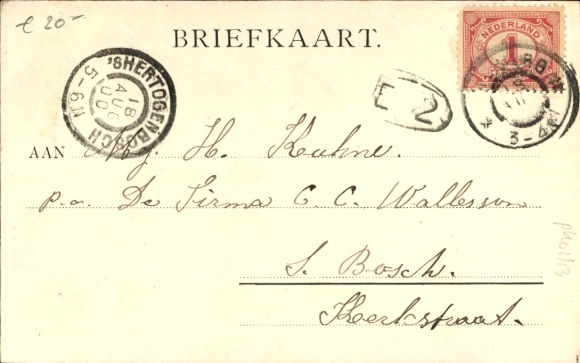 € 20-
BRIEFKAART.
NEDERLAND
1
'SHERTOGENBOSCH
18
AUG
00
5-6N
F 2
3-4N
AAN H. Kuhne.
p.a. De Firma C. C. Wallesson
S. Bosch.
Kerkstraat.
pk01113